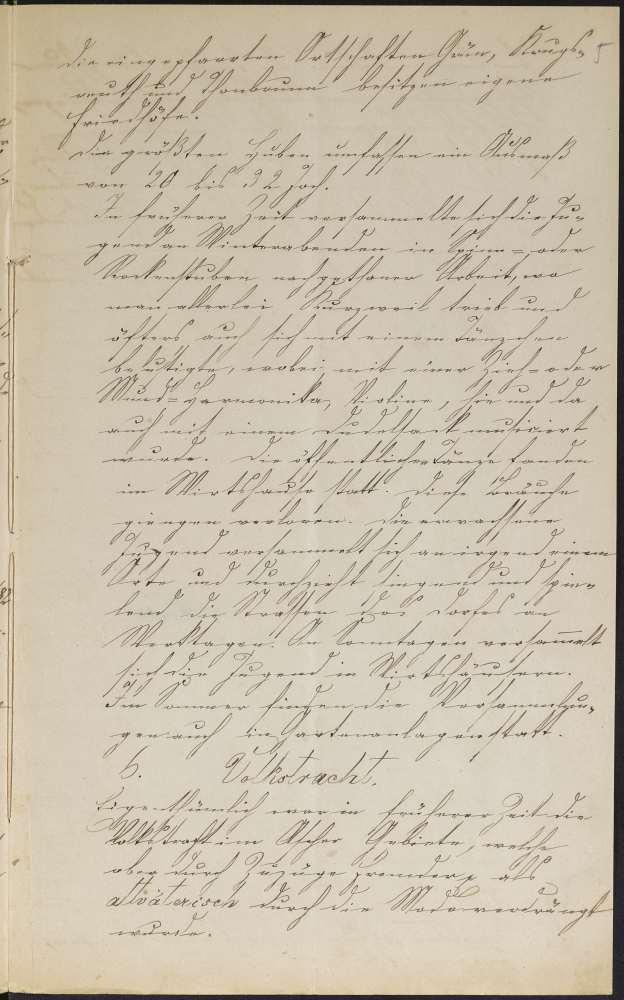 die eingepfarrten Ortschaften Grün, Krugs- 5
reuth und Thonbrunn besitzen eigene
Friedhöfe.
Die größten Huben umfassen ein Ausmaß
von 20 bis 32 Joch.
In früherer Zeit versammelte sich die Ju-
gend an Winterabenden in Spinn- oder
Rockenstuben nach gethaner Arbeit, wo
man allerlei Kurzweil trieb und
öfters auch sich mit einem Tänzchen
belustigte, wobei mit einer Zieh- oder
Mund-Harmonika, Violine, hie und da
auch mit einem Dudelsack musiciert
wurde. Die öffentlichen Tänze fanden
im Wirtshause statt. Diese Bräuche
giengen verloren. Die erwachsene
Jugend versammelt sich an irgend einem
Orte und durchzieht singend und spie-
lend die Strassen des Dorfes an
Werktagen. An Sonntagen versam̅elt
sich die Jugend in Wirtshäusern.
Im Sommer finden die Versammlun-
gen auch in Gartenanlagen statt.
6. Volkstracht.
Eigenthümlich war in früherer Zeit die
Volkstracht im Ascher Gebiete, welche
aber durch Zuzüge Fremder als
altväterisch durch die Mode verdrängt
wurde.